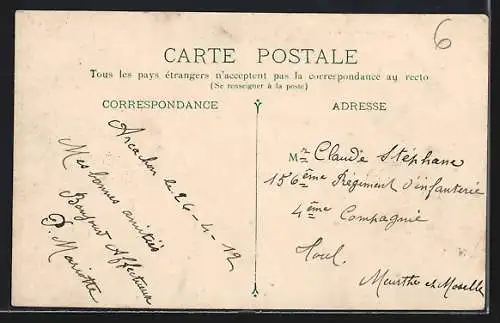 6
CARTE POSTALE
Tous les pays étrangers n'acceptent pas la correspondance au recto
(Se renseigner à la poste)
CORRESPONDANCE
Arcachon le 24-4-12
Mes bonnes amitiés
Bonjour Affectueux
P. Mariette
ADRESSE
Mr Claude Stéphane
156ème Régiment d'infanterie
4ème Compagnie
Toul.
Meurthe et Moselle